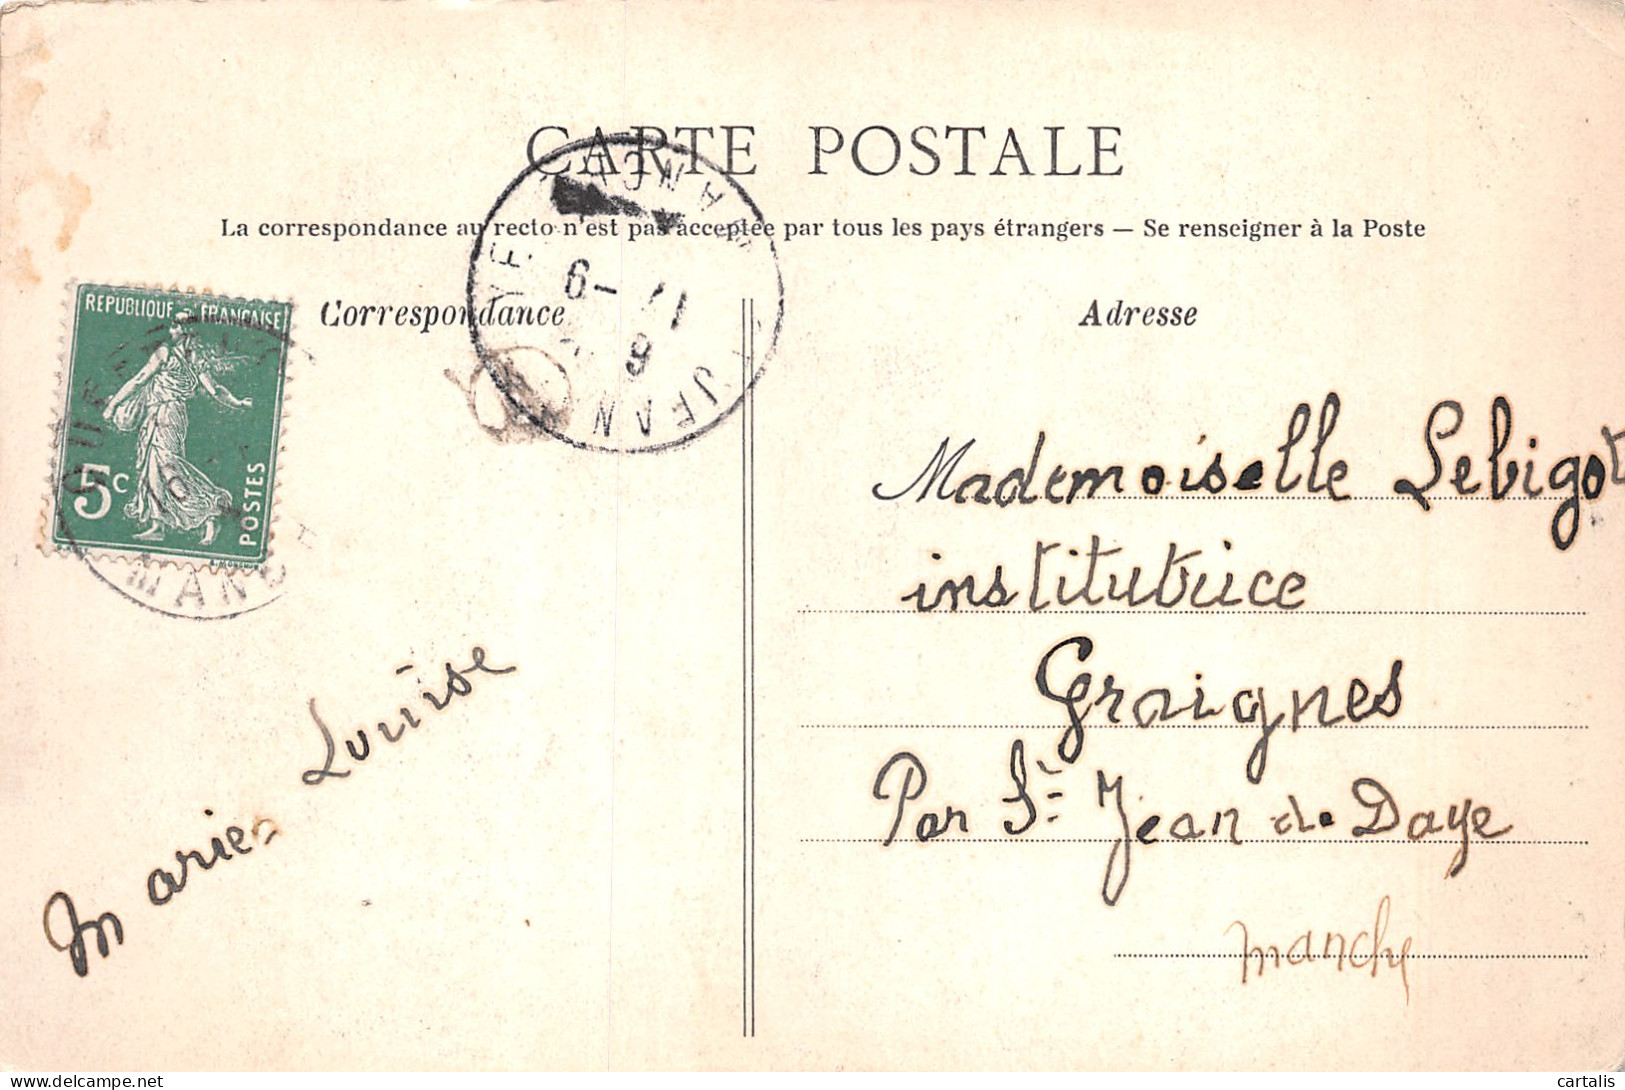 CARTE POSTALE
La correspondance au recto n'est pas acceptée par tous les pays étrangers — Se renseigner à la Poste
REPUBLIQUE FRANÇAISE
5c
POSTES
MANCH
Correspondance
MANCHE
6-11
9
JEAN
Marie-Louise
Adresse
Mademoiselle Lebigot
institutrice
Graignes
Par St Jean de Daye
Manche
delcampe.net
cartalis